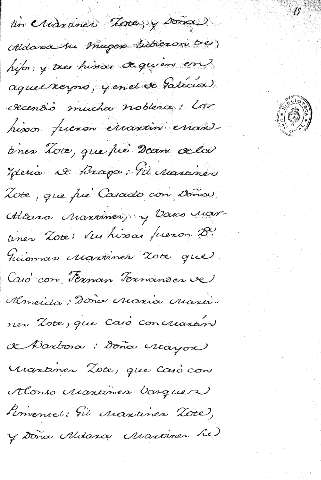 tin Martinez Zote, y Doña
Aldara su muger tubieron tres
hijos: y tres hixas de quien en
aquel reyno, y en el de Galicia
decendió mucha nobleza: los
hixos fueron Martin Mar-
tinez Zote, que fué Dean de la
Yglesia de Braga: Gil Martinez
Zote, que fué Casado con Doña
Aldara Martinez, y Vasco Mar-
tinez Zote: sus hixas fueron Dª.
Guiomar Martinez Zote que
Casó con Fernan Fernandez de
Almeida: Doña Maria Marti-
nez Zote, que casó con Martin
de Barbosa: Doña Mayor
Martinez Zote, que casó con
Alonso Martinez Vasquez
Pimentel: Gil Martinez Zote,
y Doña Aldara Martinez su